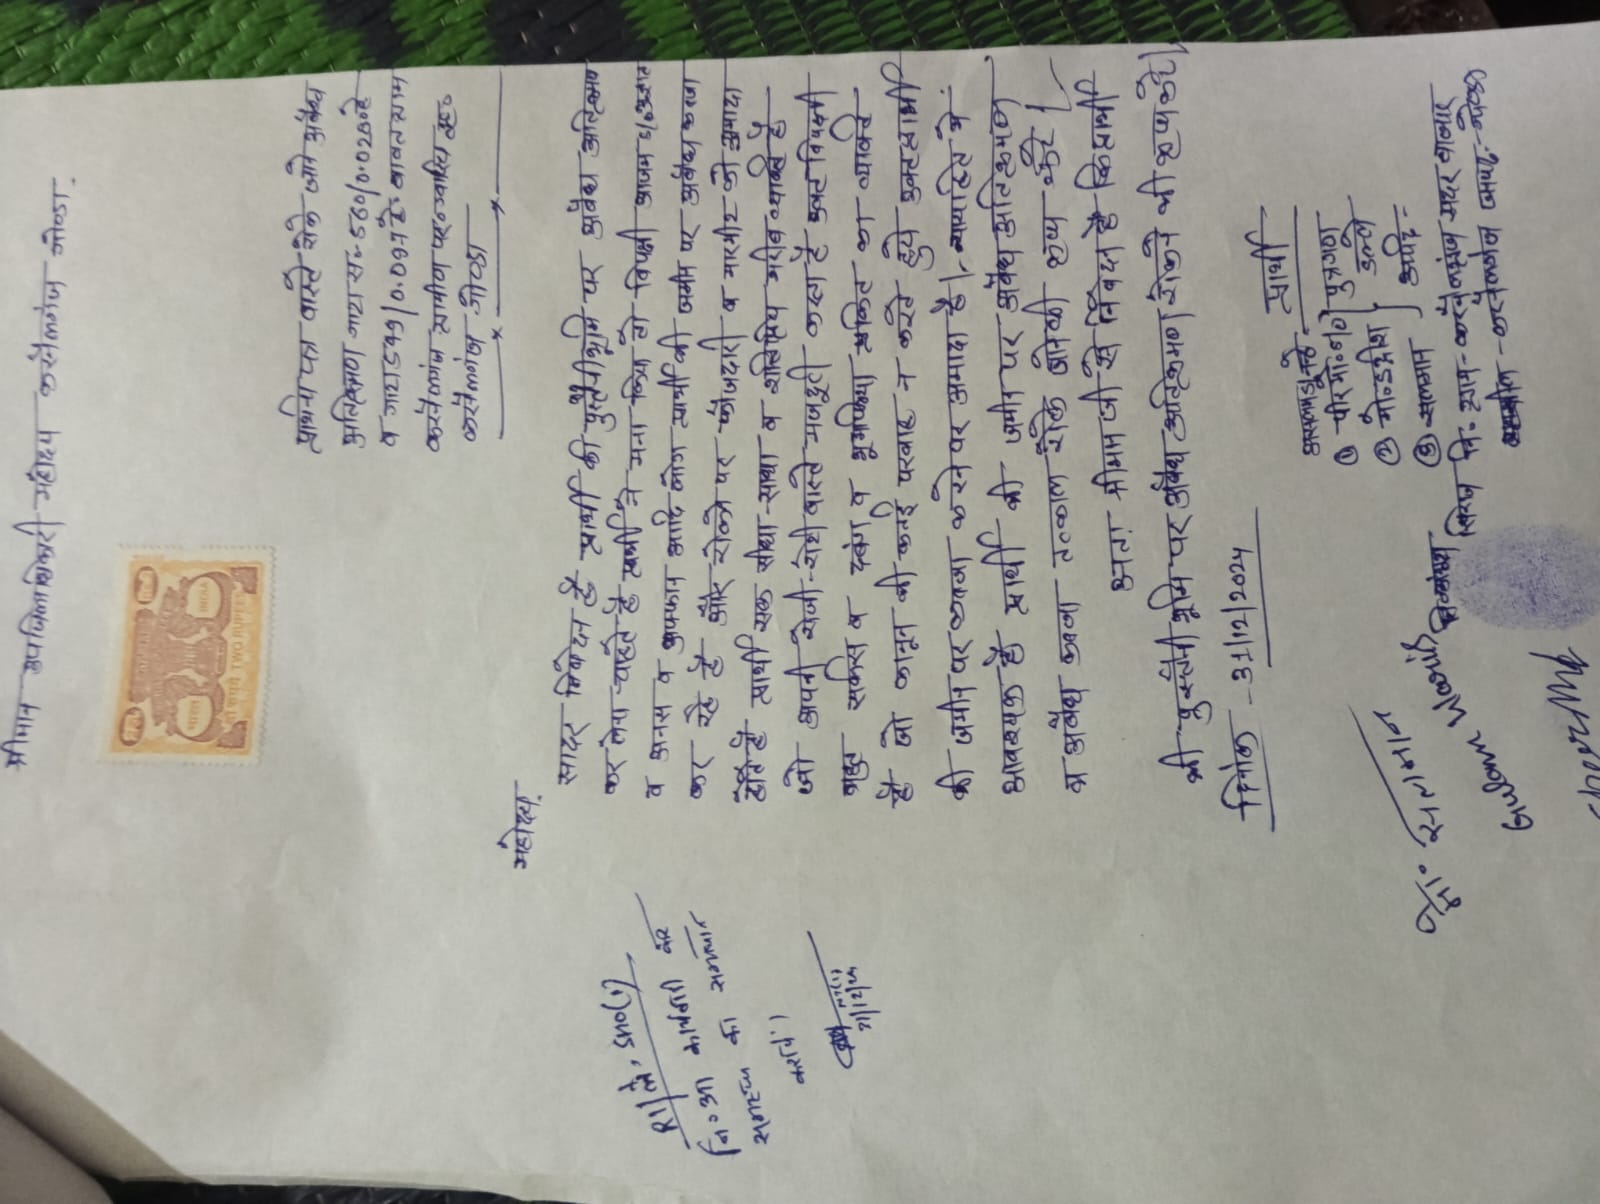 श्रीमान उपजिलाधिकारी महोदय करनैलगंज गोण्डा.
भारत INDIA
दो रुपये TWO RUPEES
प्रार्थना पत्र वास्ते रोके जाने अवैध
अतिक्रमण गाटा सं.- 560/0.0280हे
व गाटा 549/0.097 हे. बावत ग्राम
करनैलगंज ग्रामीण पर०
करनैलगंज गोण्डा
महोदय,
सादर निवेदन है प्रार्थी की पुस्तैनी भूमि पर अवैध अतिक्रमण
कर लेना चाहते है प्रार्थी ने मना किया तो विपक्षी आजम s/o
व अनस व अफ्फान आदि लोग प्रार्थी की जमीन पर अवैध कब्जा
कर रहे है और रोकने पर फौजदारी व मारपीट को अमादा
होते है प्रार्थी एक सीधा-साधा व शांतिप्रिय गरीब व्यक्ति है
जो अपनी रोजी-रोटी वास्ते मजदूरी करता है उक्त विपक्षी
बहुत सर्कस व दबंग व भूमाफिया प्रकित का व्यक्ति
है जो कानून की कतई परवाह न करते हुये उक्त प्रार्थी
की जमीन पर कब्जा करने पर अमादा है। न्यायहित में
आवश्यक है प्रार्थी की जमीन पर अवैध अतिक्रमण
व अवैध कब्जा तत्काल रोके जाने की कृपा करे।
अतः श्रीमान जी से निवेदन है कि प्रार्थी
की पुस्तैनी भूमि पर अवैध अतिक्रमण रोकने की कृपा करे।
दिनांक - 31/12/2024
RI/ले, SHO(1)
नि०आ कार्यवाही कर
समस्या का समाधान
करायें।
31/12/24
प्रार्थी
① पीर मो० } पुत्रगण
② मो० इद्रीश डल्ले
③ सलमान आदि-
नि. ग्राम - करनैलगंज सदर बाजार
तहसील - करनैलगंज जनपद - गोण्डा
मो० सलमान
Gulam Waris